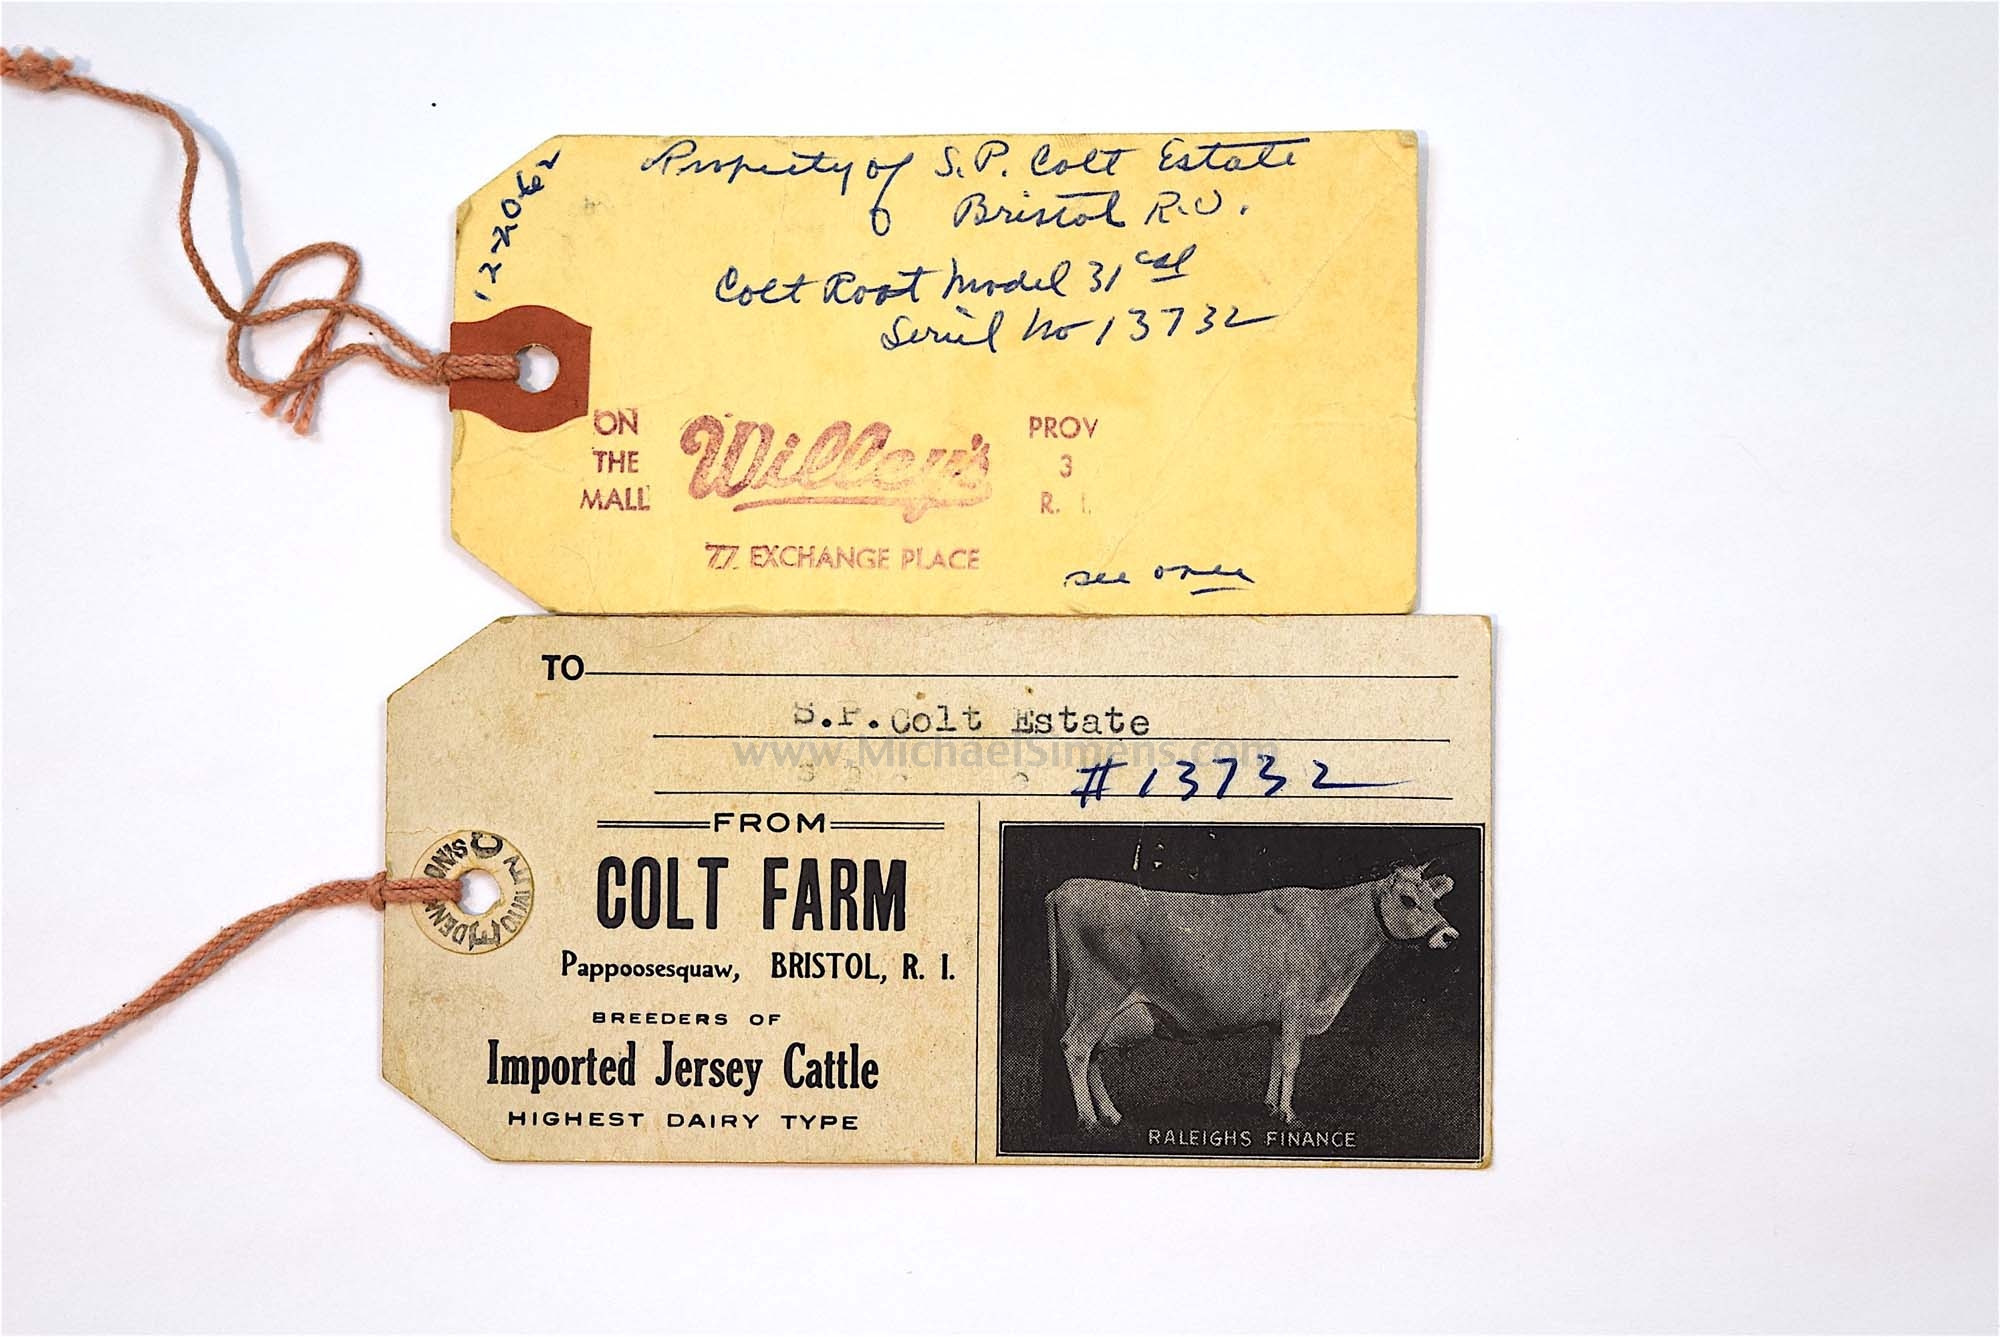 Property of S.P. Colt Estate
Bristol R.I.
Colt Root Model 31 cal
Serial No 13732
ON THE MALL
Willey's
PROV 3 R. I.
77 EXCHANGE PLACE
see over
TO
S.P.Colt Estate
www.MichaelSimens.com
#13732
FROM
COLT FARM
Pappoosesquaw, BRISTOL, R. I.
BREEDERS OF
Imported Jersey Cattle
HIGHEST DAIRY TYPE
DENNISON'S QUALITY
RALEIGHS FINANCE